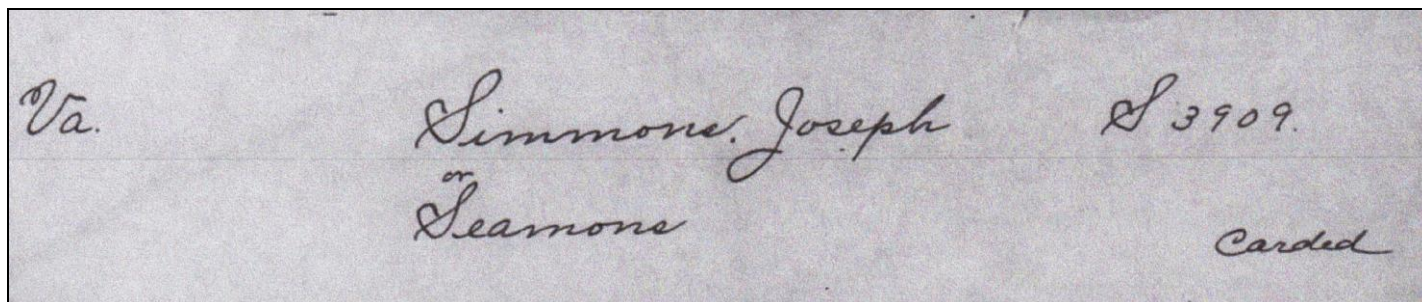 Va. Simmons, Joseph S 3909.
or
Seamons
Carded